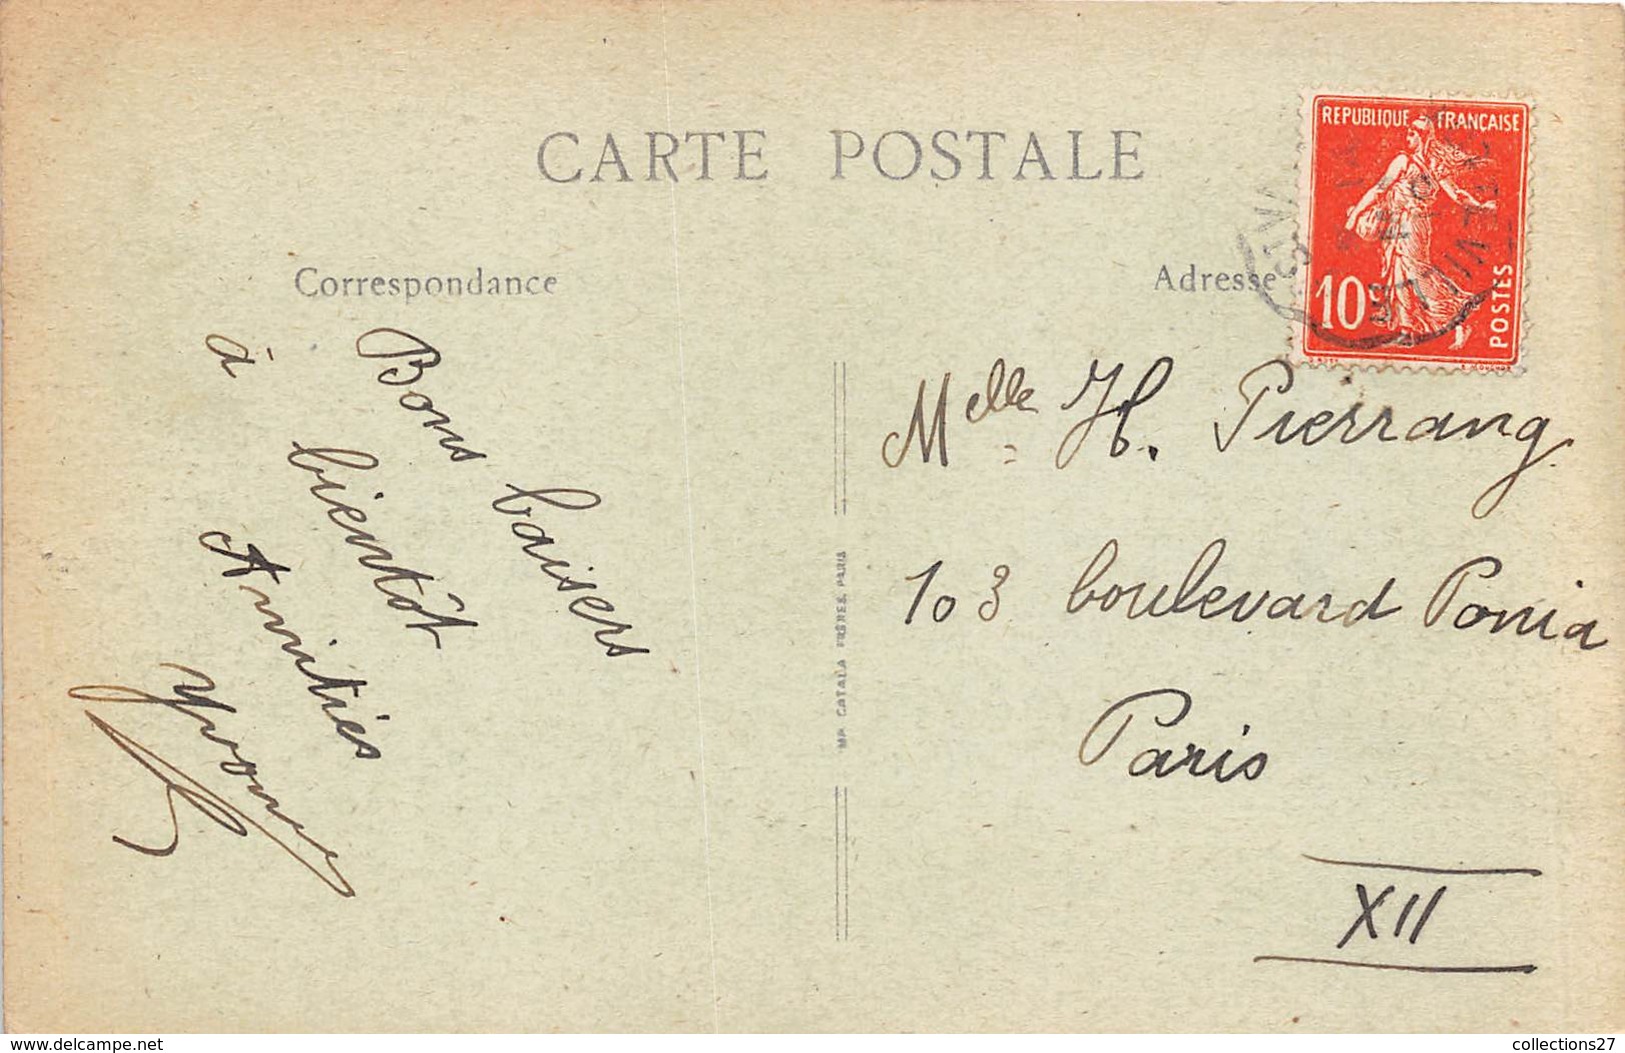 CARTE POSTALE
Correspondance
Bons baisers
à bientôt
Amitiés
Yvonne
IMP. CATALA FRÈRES, PARIS
Adresse
REPUBLIQUE FRANÇAISE
10c
POSTES
Melle H. Pierrang
103 boulevard Ponia
Paris
XII
www.delcampe.net
collections27